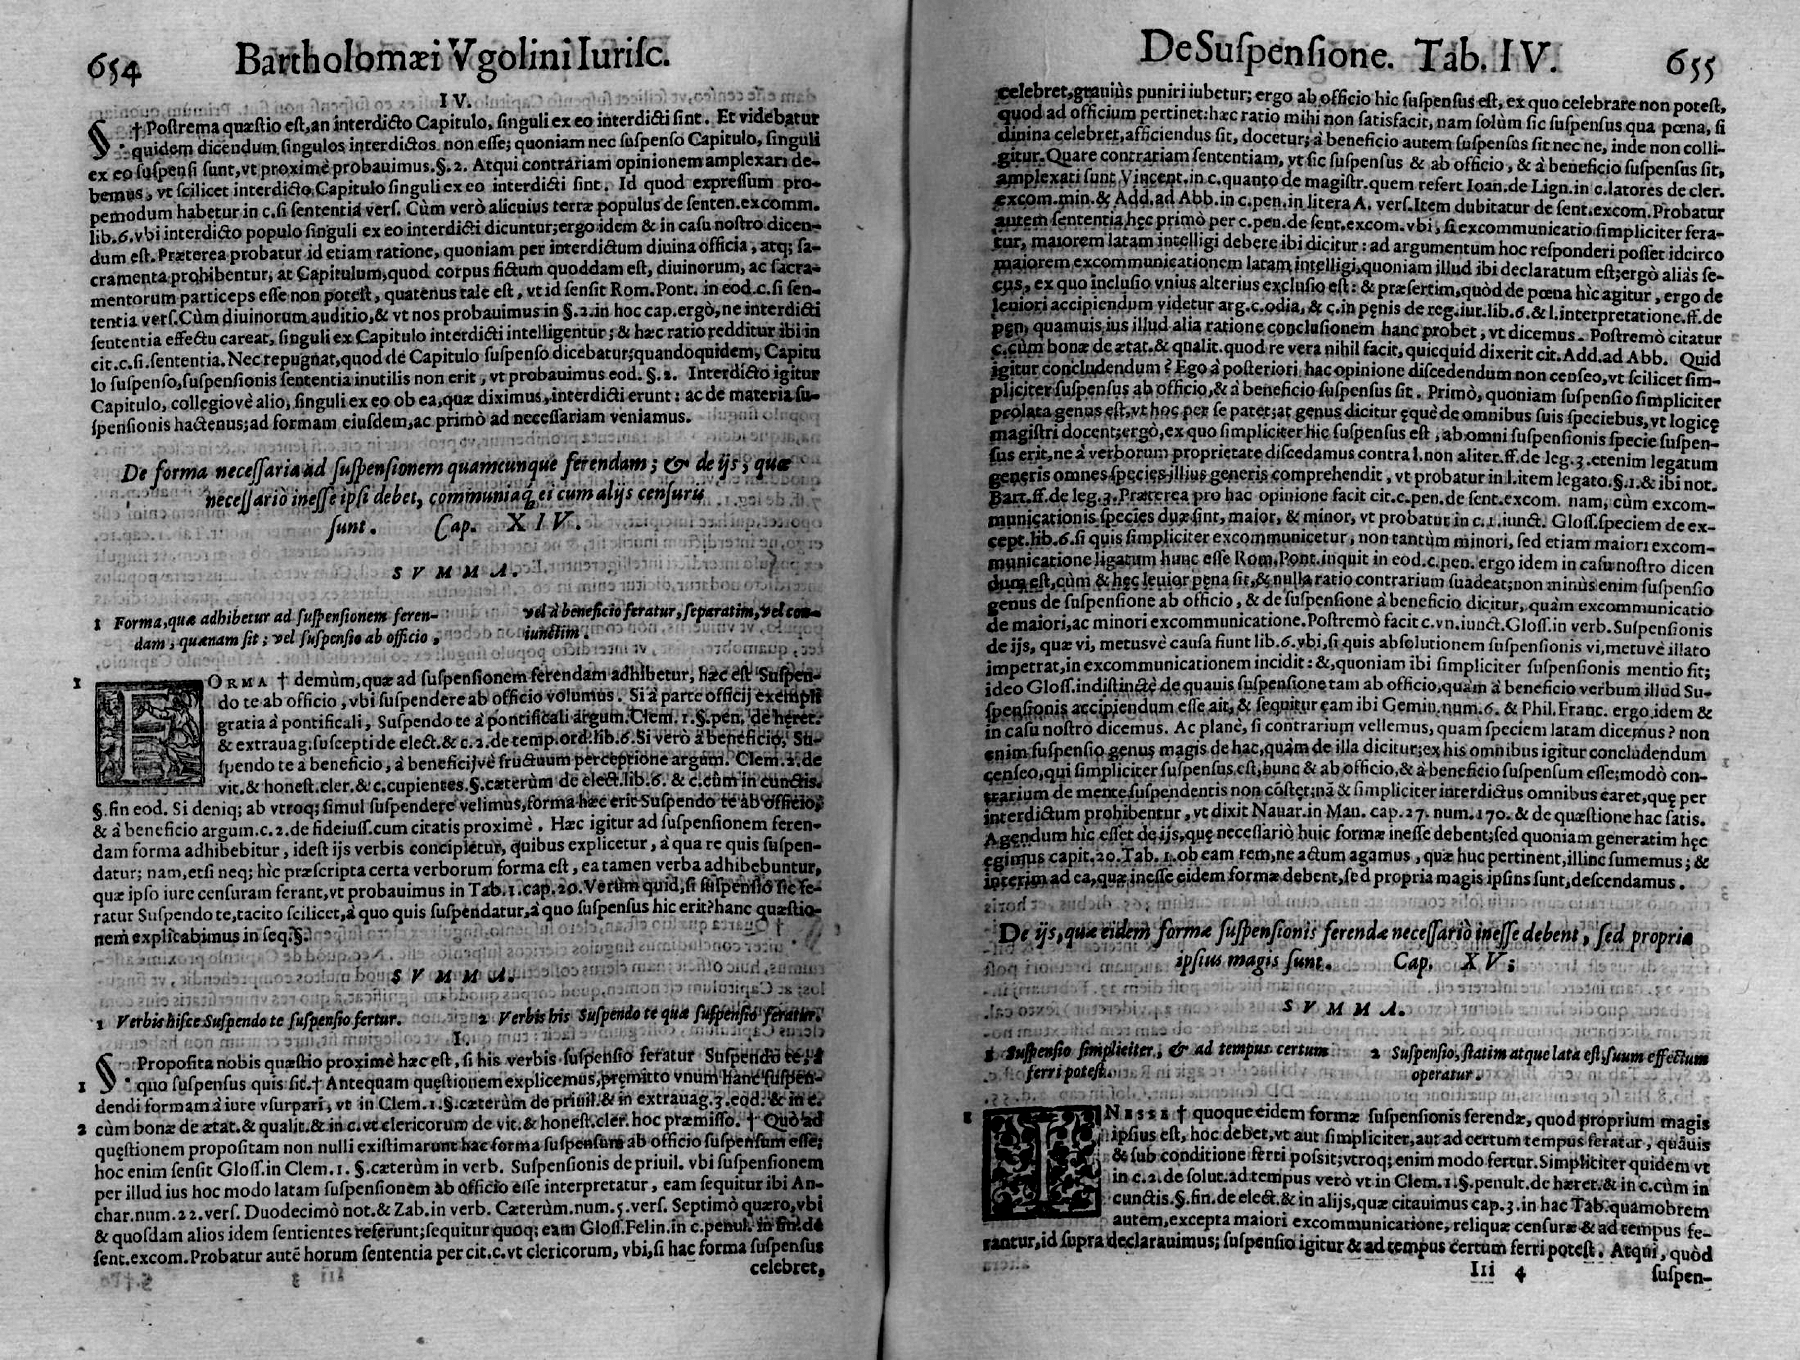 654 Bartholomæi Vgolini Iurisc.
IV.
§. † Postrema quæstio est, an interdicto Capitulo, singuli ex eo interdicti sint. Et videbatur
quidem dicendum singulos interdictos non esse; quoniam nec suspenso Capitulo, singuli
ex eo suspensi sunt, vt proximè probauimus. §. 2. Atqui contrariam opinionem amplexari de-
bemus, vt scilicet interdicto Capitulo singuli ex eo interdicti sint. Id quod expressum pro-
pemodum habetur in c. si sententia vers. Cùm verò alicuius terræ populus de senten. excomm.
lib. 6. vbi interdicto populo singuli ex eo interdicti dicuntur; ergo idem & in casu nostro dicen-
dum est. Præterea probatur id etiam ratione, quoniam per interdictum diuina officia, atq; sa-
cramenta prohibentur, at Capitulum, quod corpus fictum quoddam est, diuinorum, ac sacra-
mentorum particeps esse non potest, quatenus tale est, vt id sensit Rom. Pont. in eod. c. si sen-
tentia vers. Cùm diuinorum auditio, & vt nos probauimus in §. 2. in hoc cap. ergò, ne interdicti
sententia effectu careat, singuli ex Capitulo interdicti intelligentur; & hæc ratio redditur ibi in
cit. c. si. sententia. Nec repugnat, quod de Capitulo suspenso dicebatur; quandoquidem, Capitu
lo suspenso, suspensionis sententia inutilis non erit, vt probauimus eod. §. 2. Interdicto igitur
Capitulo, collegiovè alio, singuli ex eo ob ea, quæ diximus, interdicti erunt: ac de materia su-
spensionis hactenus; ad formam eiusdem, ac primò ad necessariam veniamus.
De forma necessaria ad suspensionem quamcunque ferendam; & de ijs, quæ
necessariò inesse ipsi debet, communiaq́; ei cum alijs censuris
sunt. Cap. XIV.
SVMMA.
1 Forma, quæ adhibetur ad suspensionem feren-
dam, quænam sit; vel suspensio ab officio,
vel à beneficio feratur, separatim, vel con-
iunctim.
1 FORMA † demùm, quæ ad suspensionem ferendam adhibetur, hæc est Suspen-
do te ab officio, vbi suspendere ab officio volumus. Si à parte officij exempli
gratia à pontificali, Suspendo te à pontificali argum. Clem. 1. §. pen. de heret.
& extrauag. suscepti de elect. & c. 2. de temp. ord. lib. 6. Si verò à beneficio, Su-
spendo te à beneficio, à beneficijvè fructuum perceptione argum. Clem. 2. de
vit. & honest. cler. & c. cupientes. §. cæterùm de elect. lib. 6. & c. cùm in cunctis.
§. fin eod. Si deniq; ab vtroq; simul suspendere velimus, forma hæc erit Suspendo te ab officio,
& à beneficio argum. c. 2. de fideiuss. cum citatis proximè. Hæc igitur ad suspensionem feren-
dam forma adhibebitur, idest ijs verbis concipietur, quibus explicetur, à qua re quis suspen-
datur; nam, etsi neq; hic præscripta certa verborum forma est, ea tamen verba adhibebuntur,
quæ ipso iure censuram ferant, vt probauimus in Tab. 1. cap. 20. Verùm quid, si suspensio sic fe-
ratur Suspendo te, tacito scilicet, à quo quis suspendatur, à quo suspensus hic erit? hanc quæstio-
nem explicabimus in seq. §.
SVMMA.
1 Verbis hisce Suspendo te suspensio fertur.
2 Verbis his Suspendo te quæ suspensio feratur.
I.
§. Proposita nobis quæstio proximè hæc est, si his verbis suspensio feratur Suspendo te, à
1 quo suspensus quis sit. † Antequam quęstionem explicemus, pręmitto vnum hanc suspen-
dendi formam à iure vsurpari, vt in Clem. 1. §. cæterùm de priuil. & in extrauag. 3. eod. & in c.
2 cùm bonæ de ætat. & qualit. & in c. vt clericorum de vit. & honest. cler. hoc præmisso. † Quò ad
quęstionem propositam non nulli existimarunt hac forma suspensum ab officio suspensum esse;
hoc enim sensit Gloss. in Clem. 1. §. cæterùm in verb. Suspensionis de priuil. vbi suspensionem
per illud ius hoc modo latam suspensionem ab officio esse interpretatur, eam sequitur ibi An-
char. num. 22. vers. Duodecimò not. & Zab. in verb. Cæterùm. num. 5. vers. Septimò quæro, vbi
& quosdam alios idem sentientes referunt; sequitur quoq; eam Gloss. Felin. in c. penul. in fin. de
sent. excom. Probatur autē horum sententia per cit. c. vt clericorum, vbi, si hac forma suspensus
celebret,
De Suspensione. Tab. IV. 655
celebret, grauiùs puniri iubetur; ergo ab officio hic suspensus est, ex quo celebrare non potest,
quod ad officium pertinet: hæc ratio mihi non satisfacit, nam solùm sic suspensus qua pœna, si
diuina celebret, afficiendus sit, docetur; à beneficio autem suspensus sit nec ne, inde non colli-
gitur. Quare contrariam sententiam, vt sic suspensus & ab officio, & à beneficio suspensus sit,
amplexati sunt Vincent. in c. quanto de magistr. quem refert Ioan. de Lign. in c. latores de cler.
excom. min. & Add. ad Abb. in c. pen. in litera A. vers. Item dubitatur de sent. excom. Probatur
autem sententia hęc primò per c. pen. de sent. excom. vbi, si excommunicatio simpliciter fera-
tur, maiorem latam intelligi debere ibi dicitur: ad argumentum hoc responderi posset idcirco
maiorem excommunicationem latam intelligi, quoniam illud ibi declaratum est; ergò aliàs se-
cus, ex quo inclusio vnius alterius exclusio est: & præsertim, quòd de pœna hìc agitur, ergo de
leuiori accipiendum videtur arg. c. odia, & c. in pęnis de reg. iur. lib. 6. & l. interpretatione. ff. de
pęn. quamuis ius illud alia ratione conclusionem hanc probet, vt dicemus. Postremò citatur
c. cùm bonæ de ætat. & qualit. quod re vera nihil facit, quicquid dixerit cit. Add. ad Abb. Quid
igitur concludendum? Ego à posteriori hac opinione discedendum non censeo, vt scilicet sim-
pliciter suspensus ab officio, & à beneficio suspensus sit. Primò, quoniam suspensio simpliciter
prolata genus est, vt hoc per se patet; at genus dicitur ęquè de omnibus suis speciebus, vt logicę
magistri docent; ergò, ex quo simpliciter hic suspensus est, ab omni suspensionis specie suspen-
sus erit, ne à verborum proprietate discedamus contra l. non aliter. ff. de leg. 3. etenim legatum
generis omnes species illius generis comprehendit, vt probatur in l. item legato. §. 1. & ibi not.
Bart. ff. de leg. 3. Præterea pro hac opinione facit cit. c. pen. de sent. excom. nam, cùm excom-
municationis species duæ sint, maior, & minor, vt probatur in c. 1. iunct. Gloss. speciem de ex-
cept. lib. 6. si quis simpliciter excommunicetur, non tantùm minori, sed etiam maiori excom-
municatione ligatum hunc esse Rom. Pont. inquit in eod. c. pen. ergo idem in casu nostro dicen
dum est, cùm & hęc leuior pęna sit, & nulla ratio contrarium suadeat; non minùs enim suspensio
genus de suspensione ab officio, & de suspensione à beneficio dicitur, quàm excommunicatio
de maiori, ac minori excommunicatione. Postremò facit c. vn. iunct. Gloss. in verb. Suspensionis
de ijs, quæ vi, metusvè causa fiunt lib. 6. vbi, si quis absolutionem suspensionis vi, metuvè illato
impetrat, in excommunicationem incidit: &, quoniam ibi simpliciter suspensionis mentio fit;
ideo Gloss. indistinctè de quauis suspensione tam ab officio, quàm à beneficio verbum illud Su-
spensionis accipiendum esse ait, & sequitur eam ibi Gemin. num. 6. & Phil. Franc. ergo idem &
in casu nostrò dicemus. Ac planè, si contrarium vellemus, quam speciem latam dicemus? non
enim suspensio genus magis de hac, quàm de illa dicitur; ex his omnibus igitur concludendum
censeo, qui simpliciter suspensus est, hunc & ab officio, & à beneficio suspensum esse; modò con-
trarium de mente suspendentis non cōstet; nā & simpliciter interdictus omnibus caret, quę per
interdictum prohibentur, vt dixit Nauar. in Man. cap. 27. num. 170. & de quæstione hac satis.
Agendum hic esset de ijs, quę necessariò huic formæ inesse debent; sed quoniam generatim hęc
egimus capit. 20. Tab. 1. ob eam rem, ne actum agamus, quæ huc pertinent, illinc sumemus; &
interim ad ca, quæ inesse eidem formæ debent, sed propria magis ipsius sunt, descendamus.
De ijs, quæ eidem formæ suspensionis ferendæ necessariò inesse debent, sed propria
ipsius magis sunt. Cap. XV.
SVMMA.
1 Suspensio simpliciter, & ad tempus certum
ferri potest.
2 Suspensio, statim atque lata est, suum effectum
operatur.
1 INESSE † quoque eidem formæ suspensionis ferendæ, quod proprium magis
ipsius est, hoc debet, vt aut simpliciter, aut ad certum tempus feratur, quāuis
& sub conditione ferri possit; vtroq; enim modo fertur. Simpliciter quidem vt
in c. 2. de solut. ad tempus verò vt in Clem. 1. §. penult. de hæret. & in c. cùm in
cunctis. §. fin. de elect. & in alijs, quæ citauimus cap. 3. in hac Tab. quamobrem
autem, excepta maiori excommunicatione, reliquæ censuræ & ad tempus fe-
rantur, id supra declarauimus; suspensio igitur & ad tempus certum ferri potest. Atqui, quòd
Iii 4 suspen-